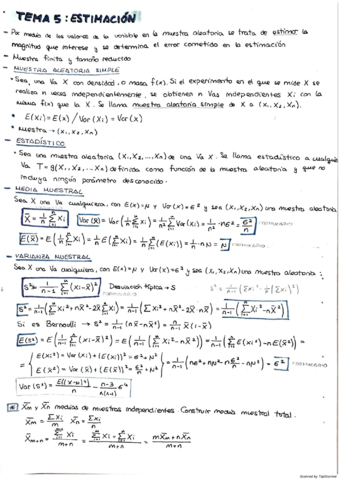 TEMA 5: ESTIMACIÓN
- Por medio de los valores de la variable en la muestra aleatoria se trata de estimar la
magnitud que interese y se determina el error cometido en la estimación
- Muestra finita y tamaño reducido
- MUESTRA ALEATORIA SIMPLE
• Sea, una Va X con densidad o masa f(x). Si el experimento en el que se mide X se
realiza n veces independientemente, se obtienen n Vas independientes Xi con la
misma f(x) que la X. Se llama muestra aleatoria simple de X a (X1, X2, Xn).
• E(Xi) = E(X) / Var(Xi) = Var(X)
• Muestra → (X1, X2, Xn)
- ESTADÍSTICO
• Sea una muestra aleatoria (X1, X2, ..., Xn) de una Va X. Se llama estadístico a cualquier
Va T = g(X1, X2, ..., Xn) definida como función de la muestra aleatoria y que no
incluya ningún parámetro desconocido.
- MEDIA MUESTRAL
Sea X una Va cualquiera, con E(X) = µ y Var(X) = σ² y sea (X1, X2, Xn) una muestra aleatoria
X̄ = 1/n Σ Xi Var(X̄) = Var(1/n Σ Xi) = 1/n² Σ Var(Xi) = 1/n² · nσ² = σ²/n
E(X̄) = E(1/n Σ Xi) = 1/n E(Σ Xi) = 1/n Σ(E(Xi)) = 1/n · nµ = µ
- VARIANZA MUESTRAL
Sea X una Va cualquiera, con E(X) = µ y Var(X) = σ² y sea (X1, X2, Xn) una muestra aleatoria:
S² = 1/n-1 Σ(Xi - X̄)² Desviación típica → S
S² = 1/n-1 (Σ Xi² + nX̄² - 2X̄ Σ Xi) = 1/n-1 (Σ Xi² + nX̄² - 2X̄ · nX̄) = 1/n-1 (Σ Xi² - nX̄²)
Si es Bernoulli → S² = 1/n-1 (nX̄ - nX̄²) = n/n-1 X̄(1 - X̄)
E(S²) = E(1/n-1 Σ(Xi - X̄)²) = E(1/n-1 (Σ Xi² - nX̄²)) = 1/n-1 (Σ E(Xi²) - nE(X̄²)) =
= { E(Xi²) = Var(Xi) + (E(Xi))² = σ² + µ²
E(X̄²) = Var(X̄) + (E(X̄))² = σ²/n + µ² } = 1/n-1 (nσ² + nµ² - nσ²/n - nµ²) = σ²
Var(S²) = E((X-µ)⁴)/n - n-3/n(n-1) σ⁴
X̄m y X̄n medias de muestras independientes. Construir media muestral total.
X̄m = Σ Xi/m X̄n = Σ Xi/n
X̄m+n = Σ Xi/m+n = Σ Xi + Σ Xi/m+n = mX̄m + nX̄n/m+n
Scanned by TapScanner